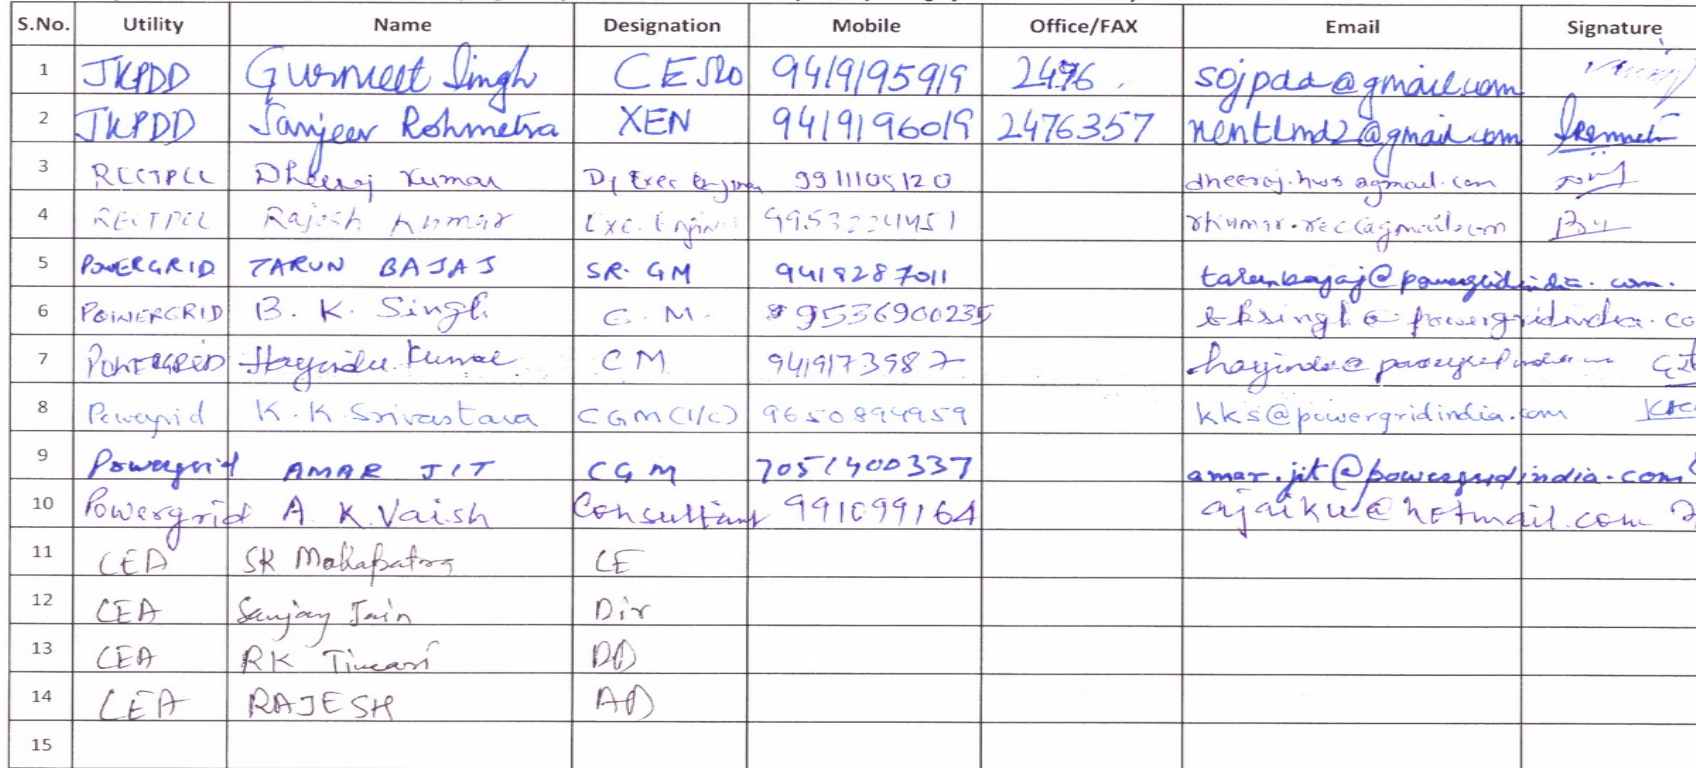 S.No. Utility Name Designation Mobile Office/FAX Email Signature
1 JKPDD Gurmeet Singh CE 9419195919 2476 sojpdd@gmail.com
2 JKPDD Sanjeev Rohmetra XEN 9419196019 2476357 @gmail.com
3 RECTPCL Dheeraj Kumar Dy Exec Engineer 9911105120 dheeraj.hws@gmail.com
4 RECTPCL Rajesh Kumar Exe. Engineer rkumar.rec@gmail.com
5 POWERGRID TARUN BAJAJ SR. GM 9419287011 tarunbajaj@powergridindia.com.
6 POWERGRID B. K. Singh G. M. 9536900235 bksingh@powergridindia.co
7 POWERGRID Kumar CM 9419173987
8 Powergrid K. K Srivastava CGM(I/C) 9650894959 kks@powergridindia.com
9 Powergrid AMAR JIT CGM 7051400337 amar.jit@powergridindia.com
10 Powergrid A. K. Vaish Consultant 991099164 ajaiku@hotmail.com
11 CEA SK Mahapatra CE
12 CEA Sanjay Jain Dir
13 CEA RK Tiwari DD
14 CEA RAJESH AD
15